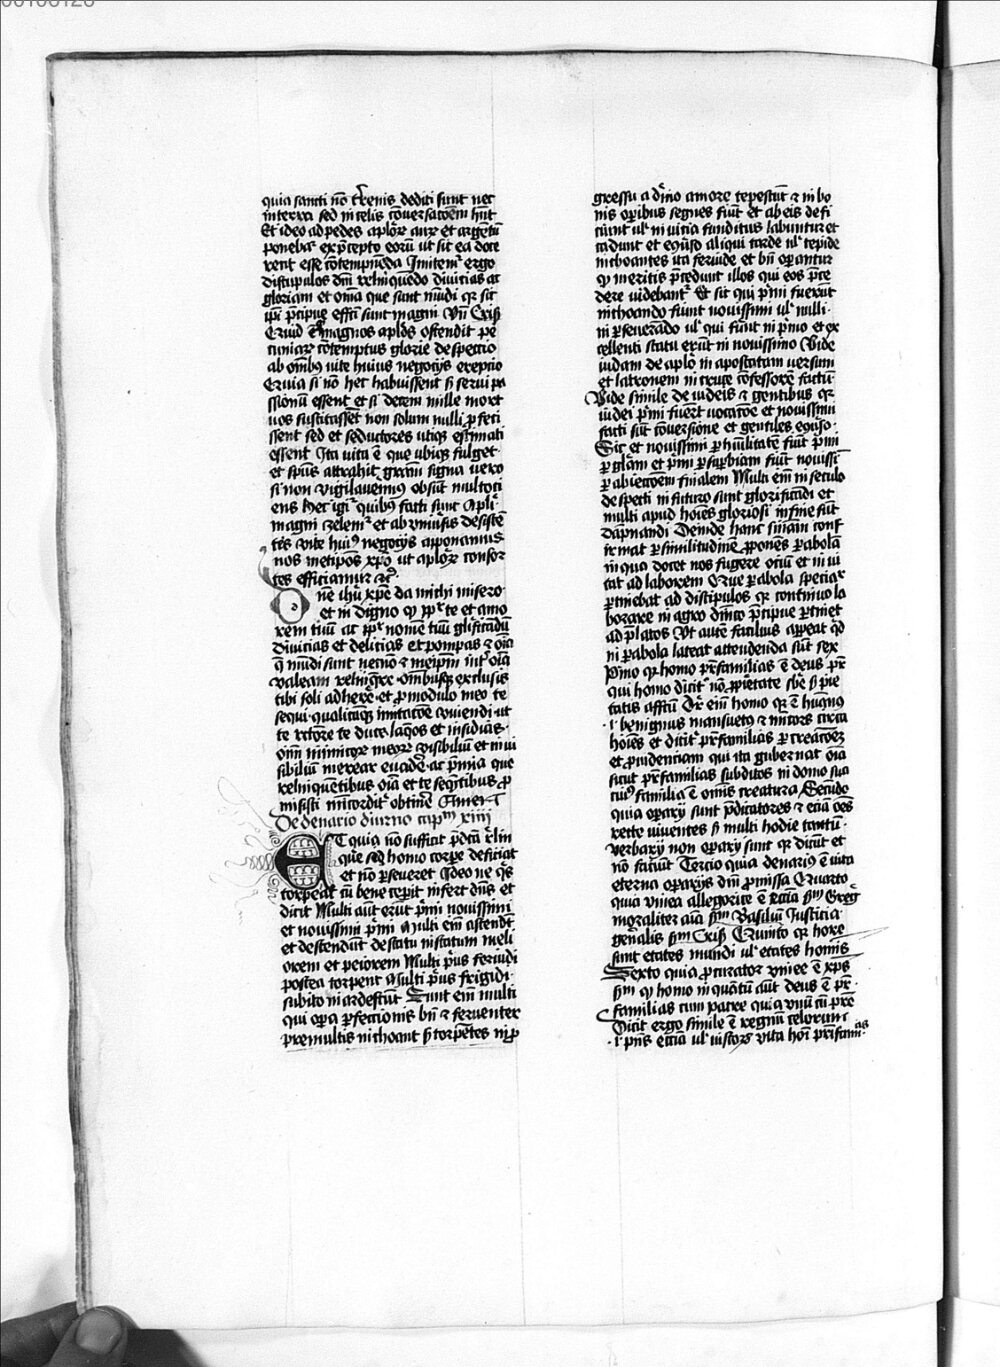 quia sancti nō t'renis dediti sunt nec
in terra sed in celis cōuersacōem hn̄t
Et ideo ad pedes aplōꝝ auꝝ et argētū
ponebāt ex p̄cepto eoꝝ ut sic ea doce
rent esse cōtempnēda Imitem' ergo
discipulos dn̄i relinquēdo diuicias ac
gloriam et om̄ia que sunt mūdi qꝛ sic
ip̄i p̄cipue effc̄i sunt magni Vn̄ Crisꝰ
Quid e magnos aplōs ostendit pe
cuniaꝝ cōtemptus glorie despectio
ab om̄ibꝫ vite huius negocijs erepcio
Quia si nō hec habuissent sꝫ serui pa
ssionū essent et si decem mille mort
uos suscitassēt non solum nulli ꝓfeci
ssent sed et seductores utiqꝫ estimati
essent Ita vita ē que ubiqꝫ fulget
et spūs attrahit grām signa vero
si non vigilauerimꝰ obsūt multoci
ens Hec igr' quibꝫ facti sunt apli
magni zelem' et ab vniūsis desistē
tes vite huiꝰ negocijs apponamus
nos metipōs xp̄o ut aplōꝝ consor
tes efficiamur ac'
Dne ihū xp̄e da michi misero
et indigno ꝙ ꝓpt' te et amo
rem tuū ac ꝓpt' nomē tuū glificādū
diuicias et delicias et pompas ⁊ oīa
q̄ mūdi sunt necnō ⁊ meip̄m int' oīa
valeam relinq̄re omībusqꝫ exclusis
tibi soli adherē et ꝓ modulo meo te
sequi qualicūqꝫ imitacōe cōuiendi ut
te rectore te duce laq̄os et insidias
oīm inimicoꝝ meoꝝ visibiliū et inui
sibiliū merear euadē ac p̄mia que
relinquētibus oīa et te seq̄ntibus ꝓ
misisti miīcordit' obtinē Amen
De denario diurno capm xiiii
ET quia nō sufficit p̄dcā r̄lin
que sꝫ homo corpe deficiat
et nō ꝑseueret Ideo ne q̄s
torpeat cū bene cepit infert dn̄s et
dicit Multi aūt erūt p̄mi nouissimi
et nouissimi p̄mi Multi em̄ astendt
et destendūt de statu in statum meli
orem et peiorem Multi p̄us feruidi
postea torpent Multi p̄us frigidi
subito inardescūt Sunt em̄ multi
qui opa ꝑfectionis bn̄ ⁊ feruenter
premultis inchoant sꝫ torpētes in ꝓ
gressu a diīo amore tepescūt ⁊ in bo
nis op̄ibus segnes fiūt et ab eis defi
ciunt ul' in vicia funditus labuntur et
cadunt et eꝯūso aliqui tarde ul' tepide
inchoantes ita feruide et bn̄ opantur
ꝙ meritis p̄cedunt illos qui eos p̄ce
dere videbant' Et sic qui p̄mi fuerūt
inchoando fiunt nouissimi ul' nulli
in ꝑseuerādo ul' qui fiūnt in p̄mo et ex
cellenti statu erūt in nouissimo Vide
iudam de aplō in apostatam versum
et latronem in cruce cōfessorē factū
Vide simile de iudeis ⁊ gentibus qꝛ
iudei p̄mi fuer̄t vocacōe et nouissimi
facti sūt cōuersione et gentiles eꝯūso
Sic et nouissimi ꝑ hūilitatē fiūt p̄mi
ꝑ glām et p̄mi ꝑ suꝑbiam fiūt nouissi
ꝑ abiectōem finalem Multi em̄ in seculo
despecti in futuro sunt glorificādi et
multi apud hoīes gloriosi in fine sūt
dāpnandi Deinde hanc sīniam conf
irmat ꝑ similitudinē ꝓponēs ꝑabolā
in qua docet nos fugere ociū et inui
tat ad laborem Que ꝑabola specia'
ꝑtinebat ad discipulos qꝛ continuo la
borare in agro dīnīco p̄cipue ꝑtinet
ad p̄latos Vt autē facilius appeat qd
in ꝑabola lateat attendenda sūt sex
Pimo qꝛ homo pr̄familias ē deus pr̄
qui homo dicit' nō ꝓpietate sbē sꝫ pie
tatis affcū Dr̄ em̄ homo qꝛ ē huānus
.i. benignus mansuetꝰ ⁊ mitors circa
hoīes et dicit' pr̄familias ꝑ creacōeꝫ
et ꝓuidenciam qui ita gubernat oīa
sicut pr̄familias subditos in domo sua
cuiꝰ familia ē om̄is creatura Secūdo
quia opaij sunt p̄dicatores ⁊ eciā oēs
recte viuentes sꝫ multi hodie tātū
verbaij non opaij sunt qꝛ dicūt et
nō faciūt Tercio quia denariꝰ ē vita
eterna opaijs dn̄i ꝓmissa Quarto
quia vinea allegorice ē ecc̄ia sm̄ Greg̉
moraliter aīa sm̄ Basiliū Iusticia
gen̄alis sm̄ Crisꝰ Quinto qꝛ hore
sunt etates mundi ul' etates homīs
Sexto quia ꝓcurator vinee ē xp̄s
sm̄ ꝙ homo in quātū aūt deus ē pr̄
familias cum patre quia vnū cū pr̄e
Dicit ergo simile ē regnū celorum
.i. p̄ns ecc̄ia ul' iustoꝝ vita hoī prīfamilias